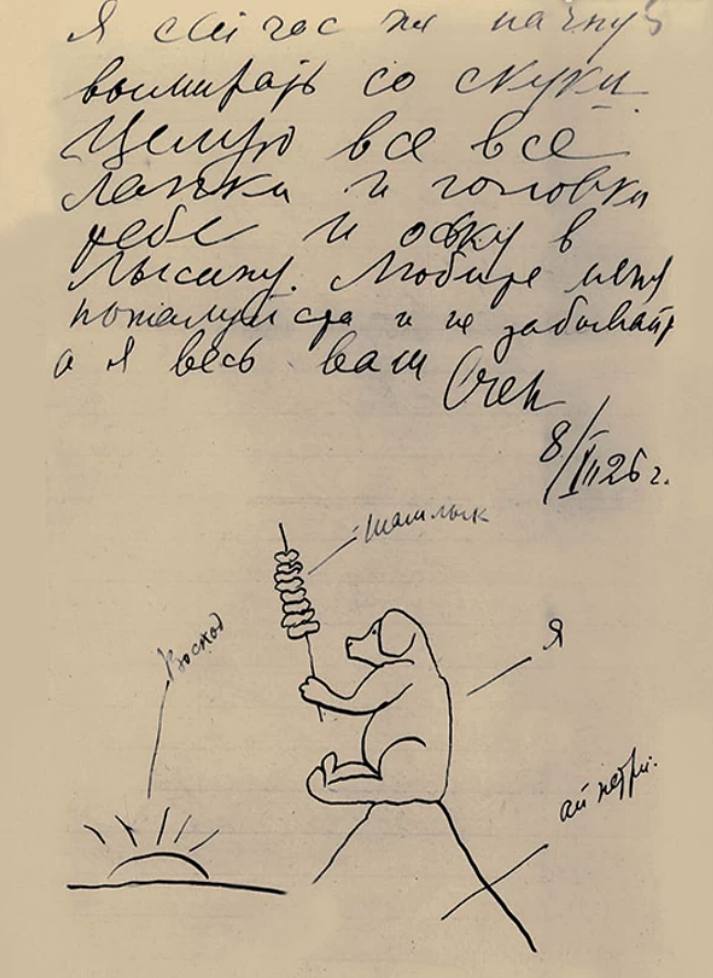 Я сейчас же начну
вымирать со скуки
Целую все все
лапки и головки
тебе и оську в
лысину. Любите меня
пожалуйста и не забывайт
а я весь ваш Счен
8/XII 26 г.
шашлык
Восход
Я
ай петри.